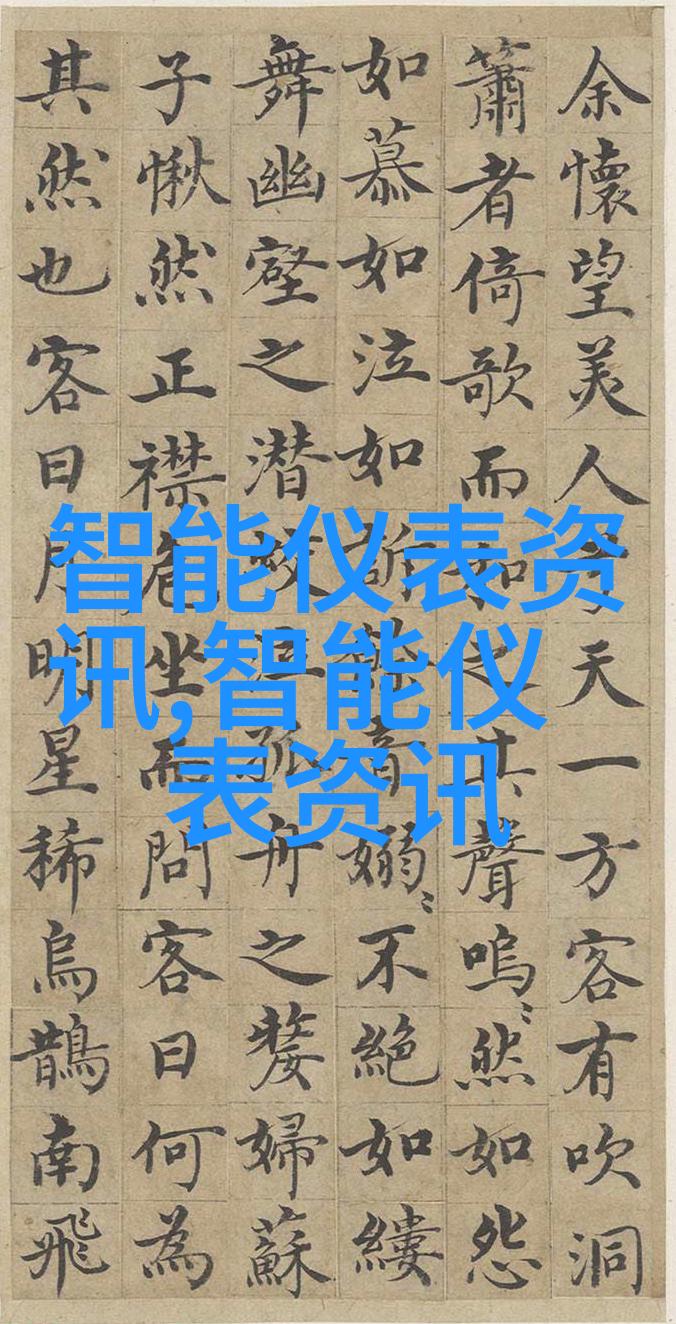 余懷望美人兮天一方客有吹洞
簫者倚歌而和之其聲嗚〻然如怨
如慕如泣如訴餘音嫋〻不絶如縷
舞幽壑之潛蛟泣孤舟之嫠婦蘇
子愀然正襟危坐而問客曰何為
其然也客曰月明星稀烏鵲南飛
智能仪表资
讯,智能仪
表资讯